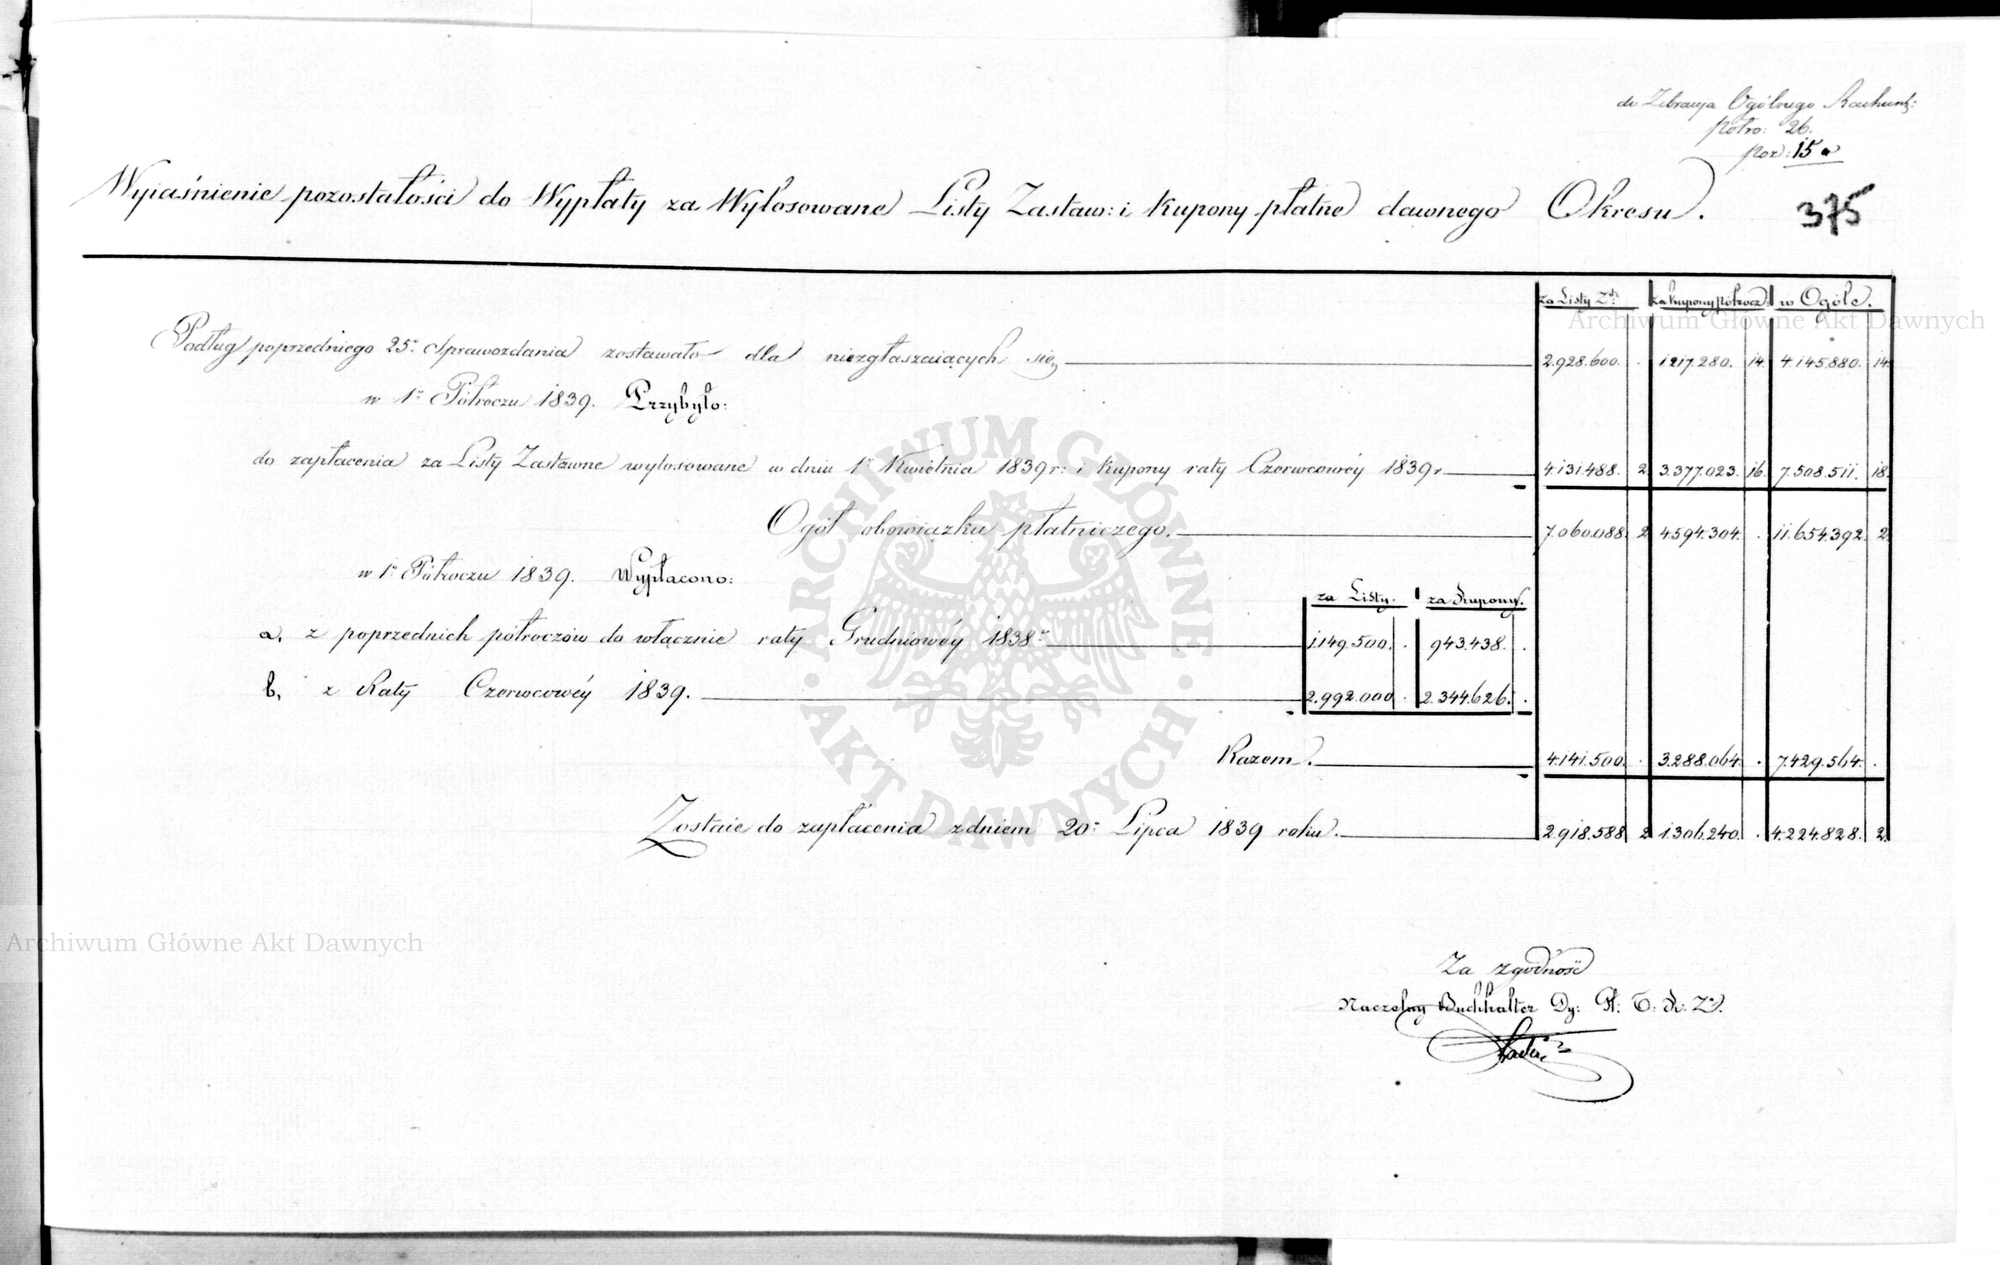 do Zebrania Ogólnego Rachunk:
Półro: 26.
poz: 15 a
Wyiaśnienie pozostałości do Wypłaty za Wylosowane Listy Zastaw: i Kupony płatne dawnego Okresu.
375
za Listy Zst: za Kupony półrocz: w Ogóle.
Archiwum Główne Akt Dawnych
Podług poprzedniego 25o Sprawozdania zostawało dla niezgłaszaiących się 2.928.600. . 1217.280. 14. 4.145.880. 14.
w 1m Półroczu 1839. Przybyło:
do zapłacenia za Listy Zastawne wylosowane w dniu 1o Kwietnia 1839 r: i kupony raty Czerwcowéy 1839 r. 4.131.488. 2. 3.377.023. 16. 7.508.511. 18.
Ogół obowiązku płatniczego. 7.060.088. 2. 4.594.304. . 11.654.392. 2.
w 1m Półroczu 1839. Wypłacono:
za Listy. za Kupony.
a, z poprzednich półroczów do włącznie raty Grudniowéy 1838 r. 1.149.500. . 943.438. .
b, z Raty Czerwcowéy 1839. 2.992.000 . 2.344.626. .
Razem. 4.141.500. . 3.288.064. . 7.429.564. .
Zostaie do zapłacenia z dniem 20m Lipca 1839 roku. 2.918.588 2 1.306.240. . 4.224.828. 2.
ARCHIWUM GŁÓWNE AKT DAWNYCH
Archiwum Główne Akt Dawnych
Za zgodność
Naczelny Buchhalter Dy: Gł: T. K. Z.